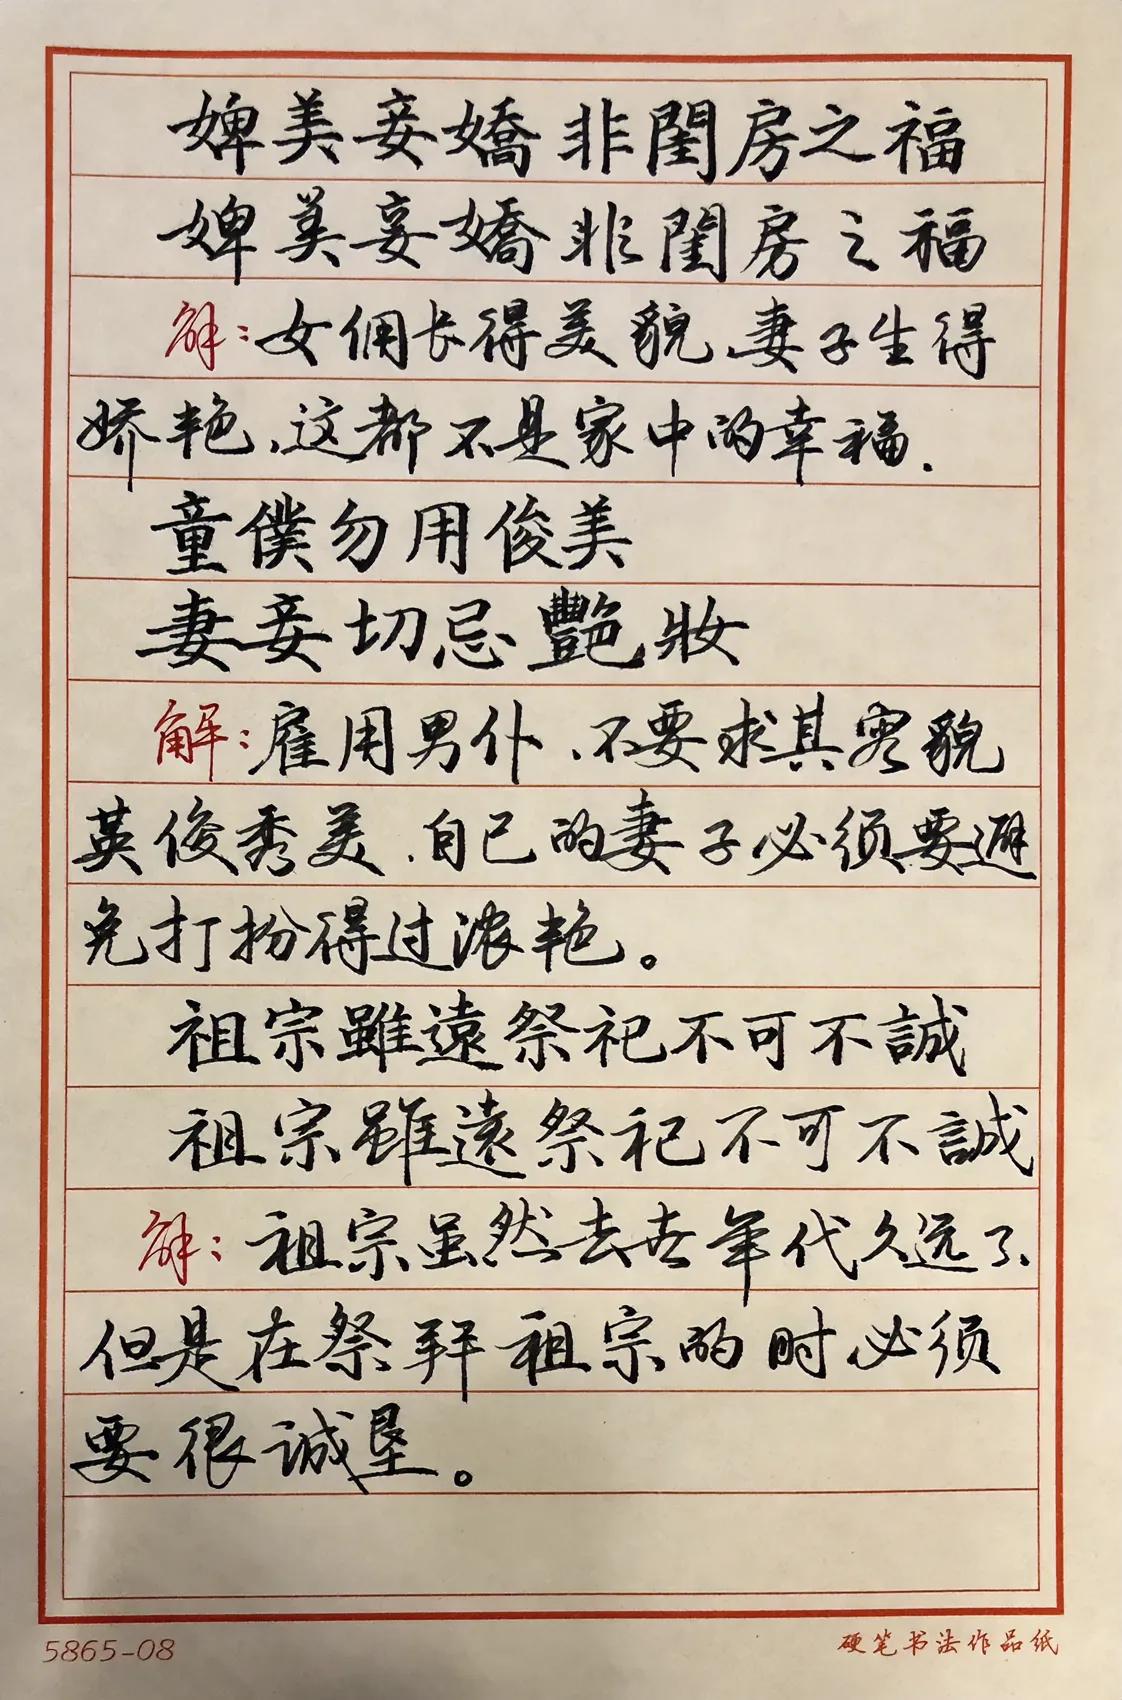 婢美妾嬌非閨房之福
婢美妾嬌非閨房之福
解：女佣长得美貌、妻子生得
娇艳、这都不是家中的幸福.
童僕勿用俊美
妻妾切忌豔妝
解：雇用男仆、不要求其容貌
英俊秀美、自己的妻子必须要避
免打扮得过浓艳。
祖宗雖遠祭祀不可不誠
祖宗雖遠祭祀不可不誠
解：祖宗虽然去世年代久远了、
但是在祭拜祖宗的时必须
要很诚垦。
5865-08
硬笔书法作品纸